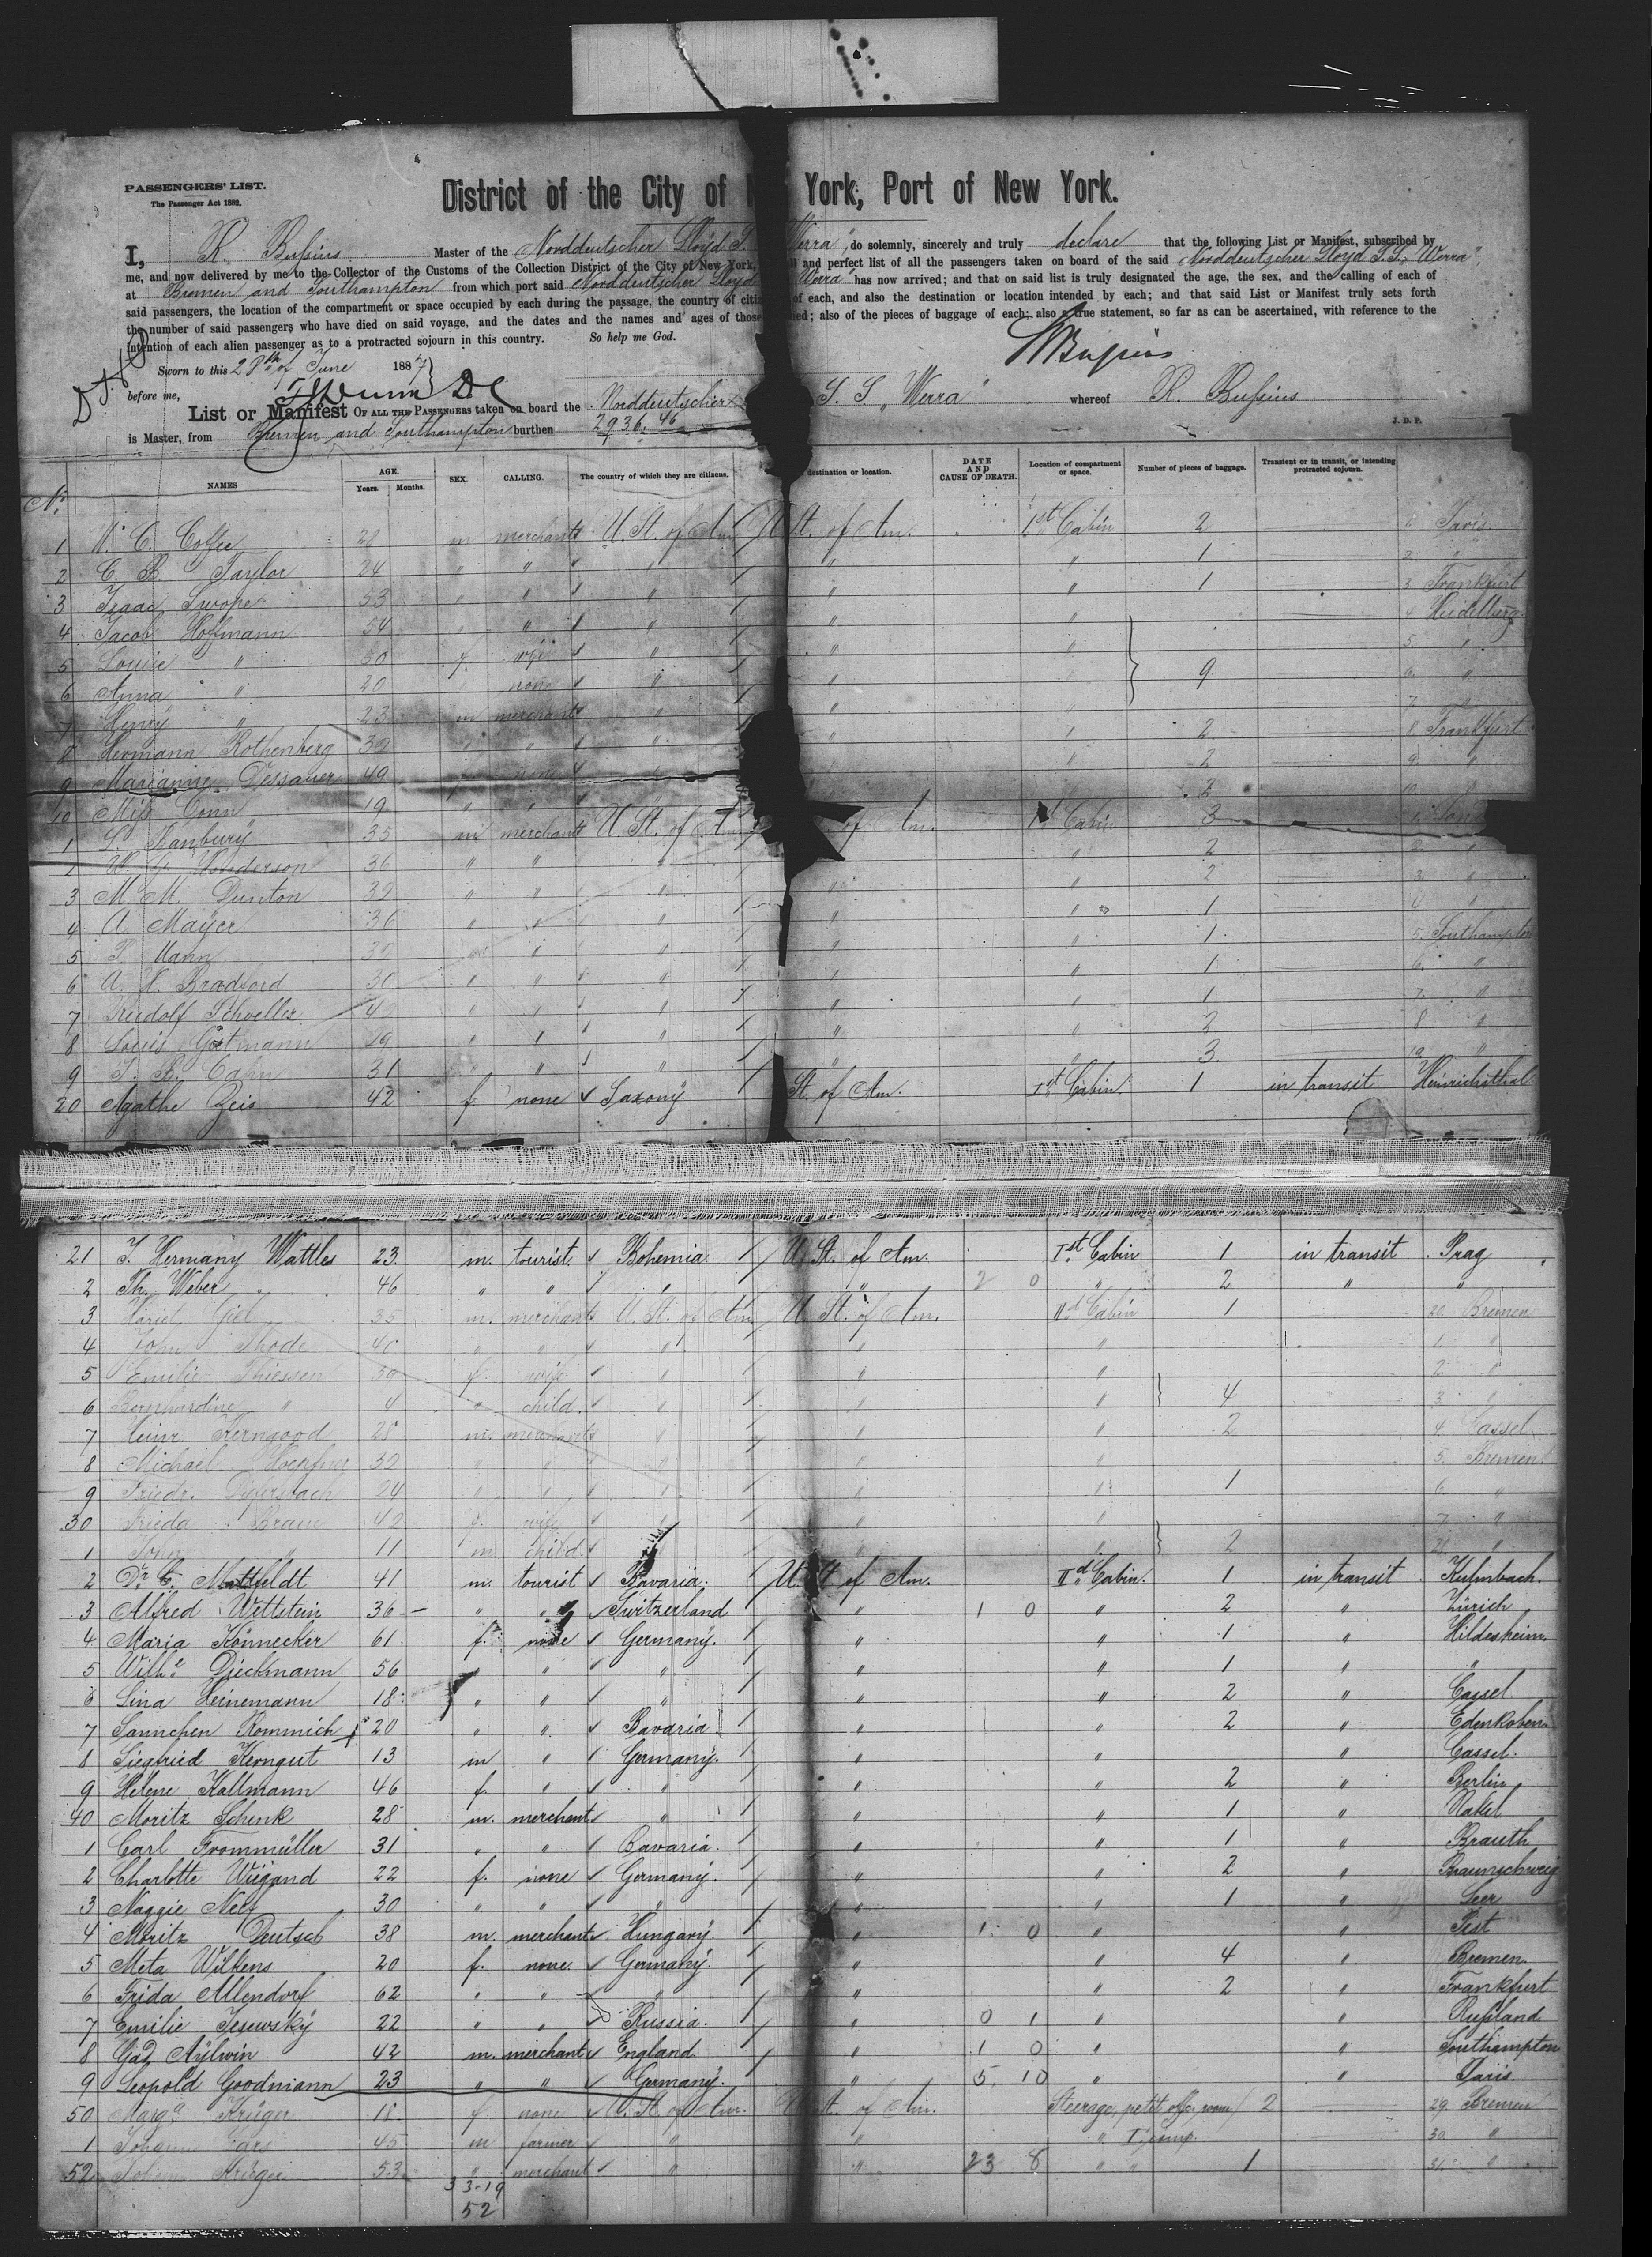 PASSENGERS' LIST.
The Passenger Act 1882.
District of the City of N York, Port of New York.
I, R. Bussius Master of the Norddeutscher Lloyd S. Werra" do solemnly, sincerely and truly declare that the following List or Manifest, subscribed by
me, and now delivered by me to the Collector of the Customs of the Collection District of the City of New York, ll and perfect list of all the passengers taken on board of the said Norddeutscher Lloyd S.S. "Werra",
at Bremen and Southampton from which port said Norddeutscher Lloyd Werra" has now arrived; and that on said list is truly designated the age, the sex, and the calling of each of
said passengers, the location of the compartment or space occupied by each during the passage, the country of citiz of each, and also the destination or location intended by each; and that said List or Manifest truly sets forth
the number of said passengers who have died on said voyage, and the dates and the names and ages of those ied; also of the pieces of baggage of each; also a true statement, so far as can be ascertained, with reference to the
intention of each alien passenger as to a protracted sojourn in this country. So help me God.
RBussius
Sworn to this 28th of June 1887
before me,
List or Manifest OF ALL THE PASSENGERS taken on board the Norddeutscher S. S. "Werra" whereof R. Bussius
is Master, from Bremen and Southampton burthen 2936.46
J. D. P.
No. NAMES AGE. Years. Months. SEX. CALLING. The country of which they are citizens. destination or location. DATE AND CAUSE OF DEATH. Location of compartment or space. Number of pieces of baggage. Transient or in transit, or intending protracted sojourn.
1 W. C. Coffee 28 m merchant U. St. of Am. U St. of Am. 1st Cabin 2 Paris
2 C. B. Taylor 24 " " " " " 1 2 "
3 Isaac Swope 53 " " " " " 1 3 Frankfurt
4 Jacob Hoffmann 54 " " " " " 4 Heidelberg
5 Louise " 50 f. wife " " " 5. "
6 Anna " 20 none " " " 9 6. "
7 Henry " 23 m merchant " " " 7. "
8 Hermann Rothenberg 32 " " " " " 2 8 Frankfurt
9 Marianne Dessauer 49 none " " " 2 9. "
10 Miss Conn 19 " " " 2 10. "
1 S. Hanbury 35 m merchant U St. of Am of Am. 1st Cabin 3 1.
2 Henderson 36 " " " " 2 2. "
3 M. M. Dunton 32 " " " " " 2 3. "
4 A. Mayer 36 " " " " 1 4 "
5 Mann " " " " 1 5. Southampton
6 A. Bradford 30 " " " " " 1 6. "
7 Rudolf Schoeller " " " " " 1 7. "
8 Louis Gutmann 29 " " " " " 2 8 "
9 Cahn 31 " " " " " 3 19 "
20 Agathe Zeis 42 f. none Saxony St. of Am. Ist Cabin. 1 in transit Heinrichsthal
21 J. Hermany Wattles 23 m. tourist Bohemia U. St. of Am. Ist Cabin 1 in transit Prag
2 Th. Weber 46 " " " " 2 0 " 2 " "
3 35 m. merchant U. St. of Am U. St. of Am. IId Cabin 1 20. Bremen
4 John Thode 40 " " " " " 1. "
5 Emilie Thiessen 30 f. wife " " " 2 "
6 Bernhardine " 4 " child. " " " 4 3. "
7 Heinr. Kerngood 28 m. merchant " " " 2 4 Cassel.
8 Michael 32 " " " " " 5. Bremen.
9 Friedr. 24 " " " " " 1 6 "
30 Frieda Braun 42 f. wife " " " 7. "
1 John " 11 m. child. " " " 2 "
2 Dr. C. Mattfeldt 41 m. tourist Bavaria. U. St. of Am. IId Cabin. 1 in transit Kulmbach.
3 Alfred Wettstein 36 " " Switzerland " 1 0 " 2 " Zürich
4 Maria Könnecker 61 f. none Germany. " " 1 " Hildesheim.
5 Wilhe. Dieckmann 56 " " " " " 1 " "
6 Lina Heinemann 18 " " " " " 2 " Cassel.
7 Sannchen Rommich 20 " " Bavaria. " " 2 " Edenkoben.
8 Siegfried Kerngut 13 m " Germany. " " " Cassel.
9 Helene Kallmann 46 f. " " " " 2 " Berlin
40 Moritz Schenk 28 m. merchant " " " 1 " Nakel
1 Carl Frommüller 31 " " Bavaria. " " 1 " Brauth
2 Charlotte Wiegand 22 f. none Germany. " " 2 " Braunschweig
3 Maggie Nely 30 " " " " " 1 " Leer
4 Moritz Deutsch 38 m. merchant Hungary. " 1. 0 " " Pest
5 Meta Wilkens 20 f. none Germany. " " 4 " Bremen.
6 Frida Allendorf 62 " " " " " 2 " Frankfurt
7 Emilie Jesewsky 22 " " Russia. " 0 1 " " Russland
8 Gad Aylwin 42 m. merchant England " 1 0 " " Southampton
9 Leopold Goodmann 23 " " Germany. " 5. 10 " " Paris.
50 Marga. Krüger 18 f. none U. St. of Am. U St. of Am. Steerage, 2 29. Bremen
1 Johann 45 m farmer " " " I comp. 30. "
52 Krüger 53 " merchant " " 23 8 " " 1 31. "
33-19
52